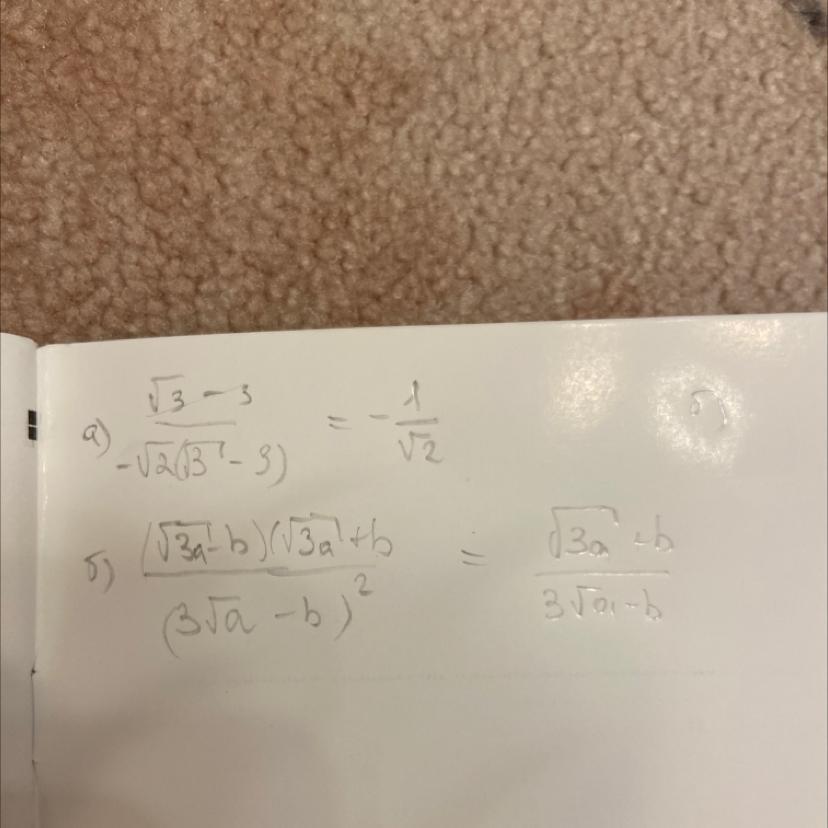 а) (√3 - 3)/(-√2(√3 - 3)) = - 1/√2
б)
б) ((√3a - b)(√3a + b)/(3√a - b)² = (√3a + b)/(3√a - b)